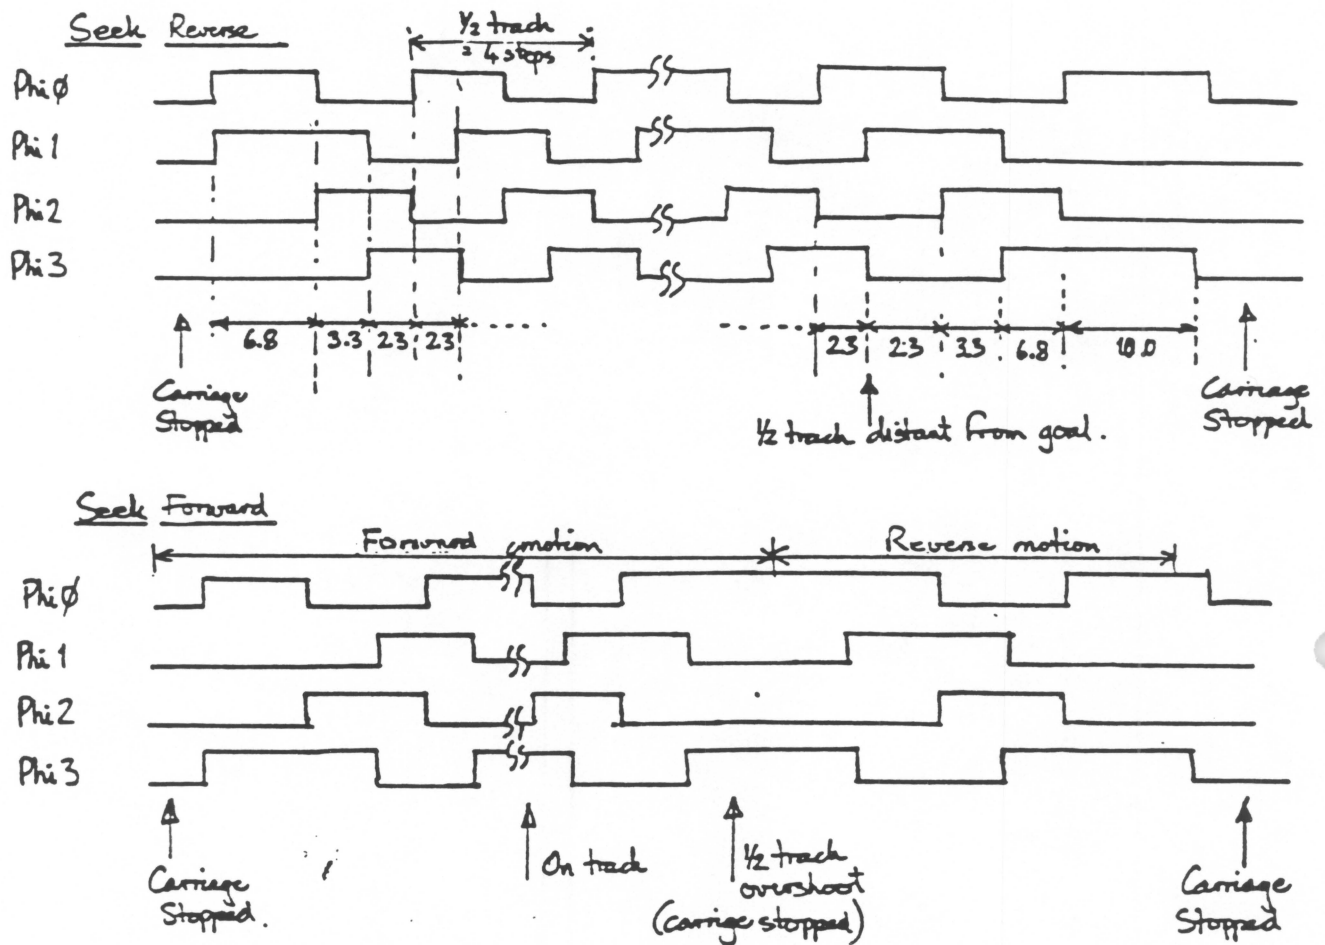 Seek Reverse
½ track
= 4 steps
Phi Ø
Phi 1
Phi 2
Phi 3
6.8 3.3 23 23 23 2.3 3.3 6.8 10.0
Carriage
Stopped
½ track distant from goal.
Carriage
Stopped
Seek Forward
Forward motion Reverse motion
Phi Ø
Phi 1
Phi 2
Phi 3
Carriage
Stopped.
On track
½ track
overshoot
(carrige stopped)
Carriage
Stopped